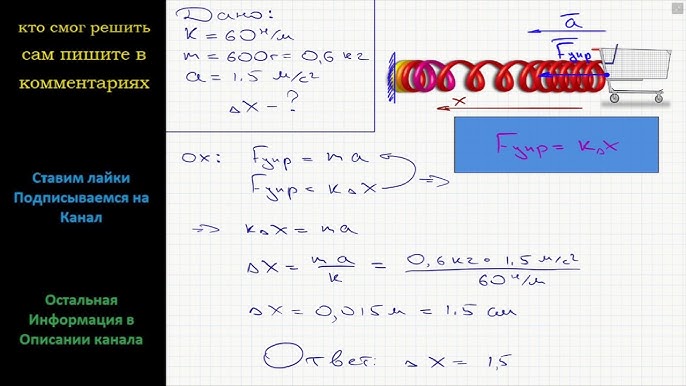 кто смог решить
сам пишите в
комментариях
Ставим лайки
Подписываемся на
Канал
Остальная
Информация в
Описании канала
Дано:
K = 60 н/м
m = 600г = 0,6 кг
a = 1.5 м/с²
Δx - ?
a
Fупр
x
Fупр = kΔx
ox: Fупр = ma
Fупр = kΔx ⇒
⇒ kΔx = ma
Δx = ma/k = 0,6 кг · 1,5 м/с² / 60 н/м
Δx = 0,015 м = 1.5 см
Ответ: Δx = 1,5